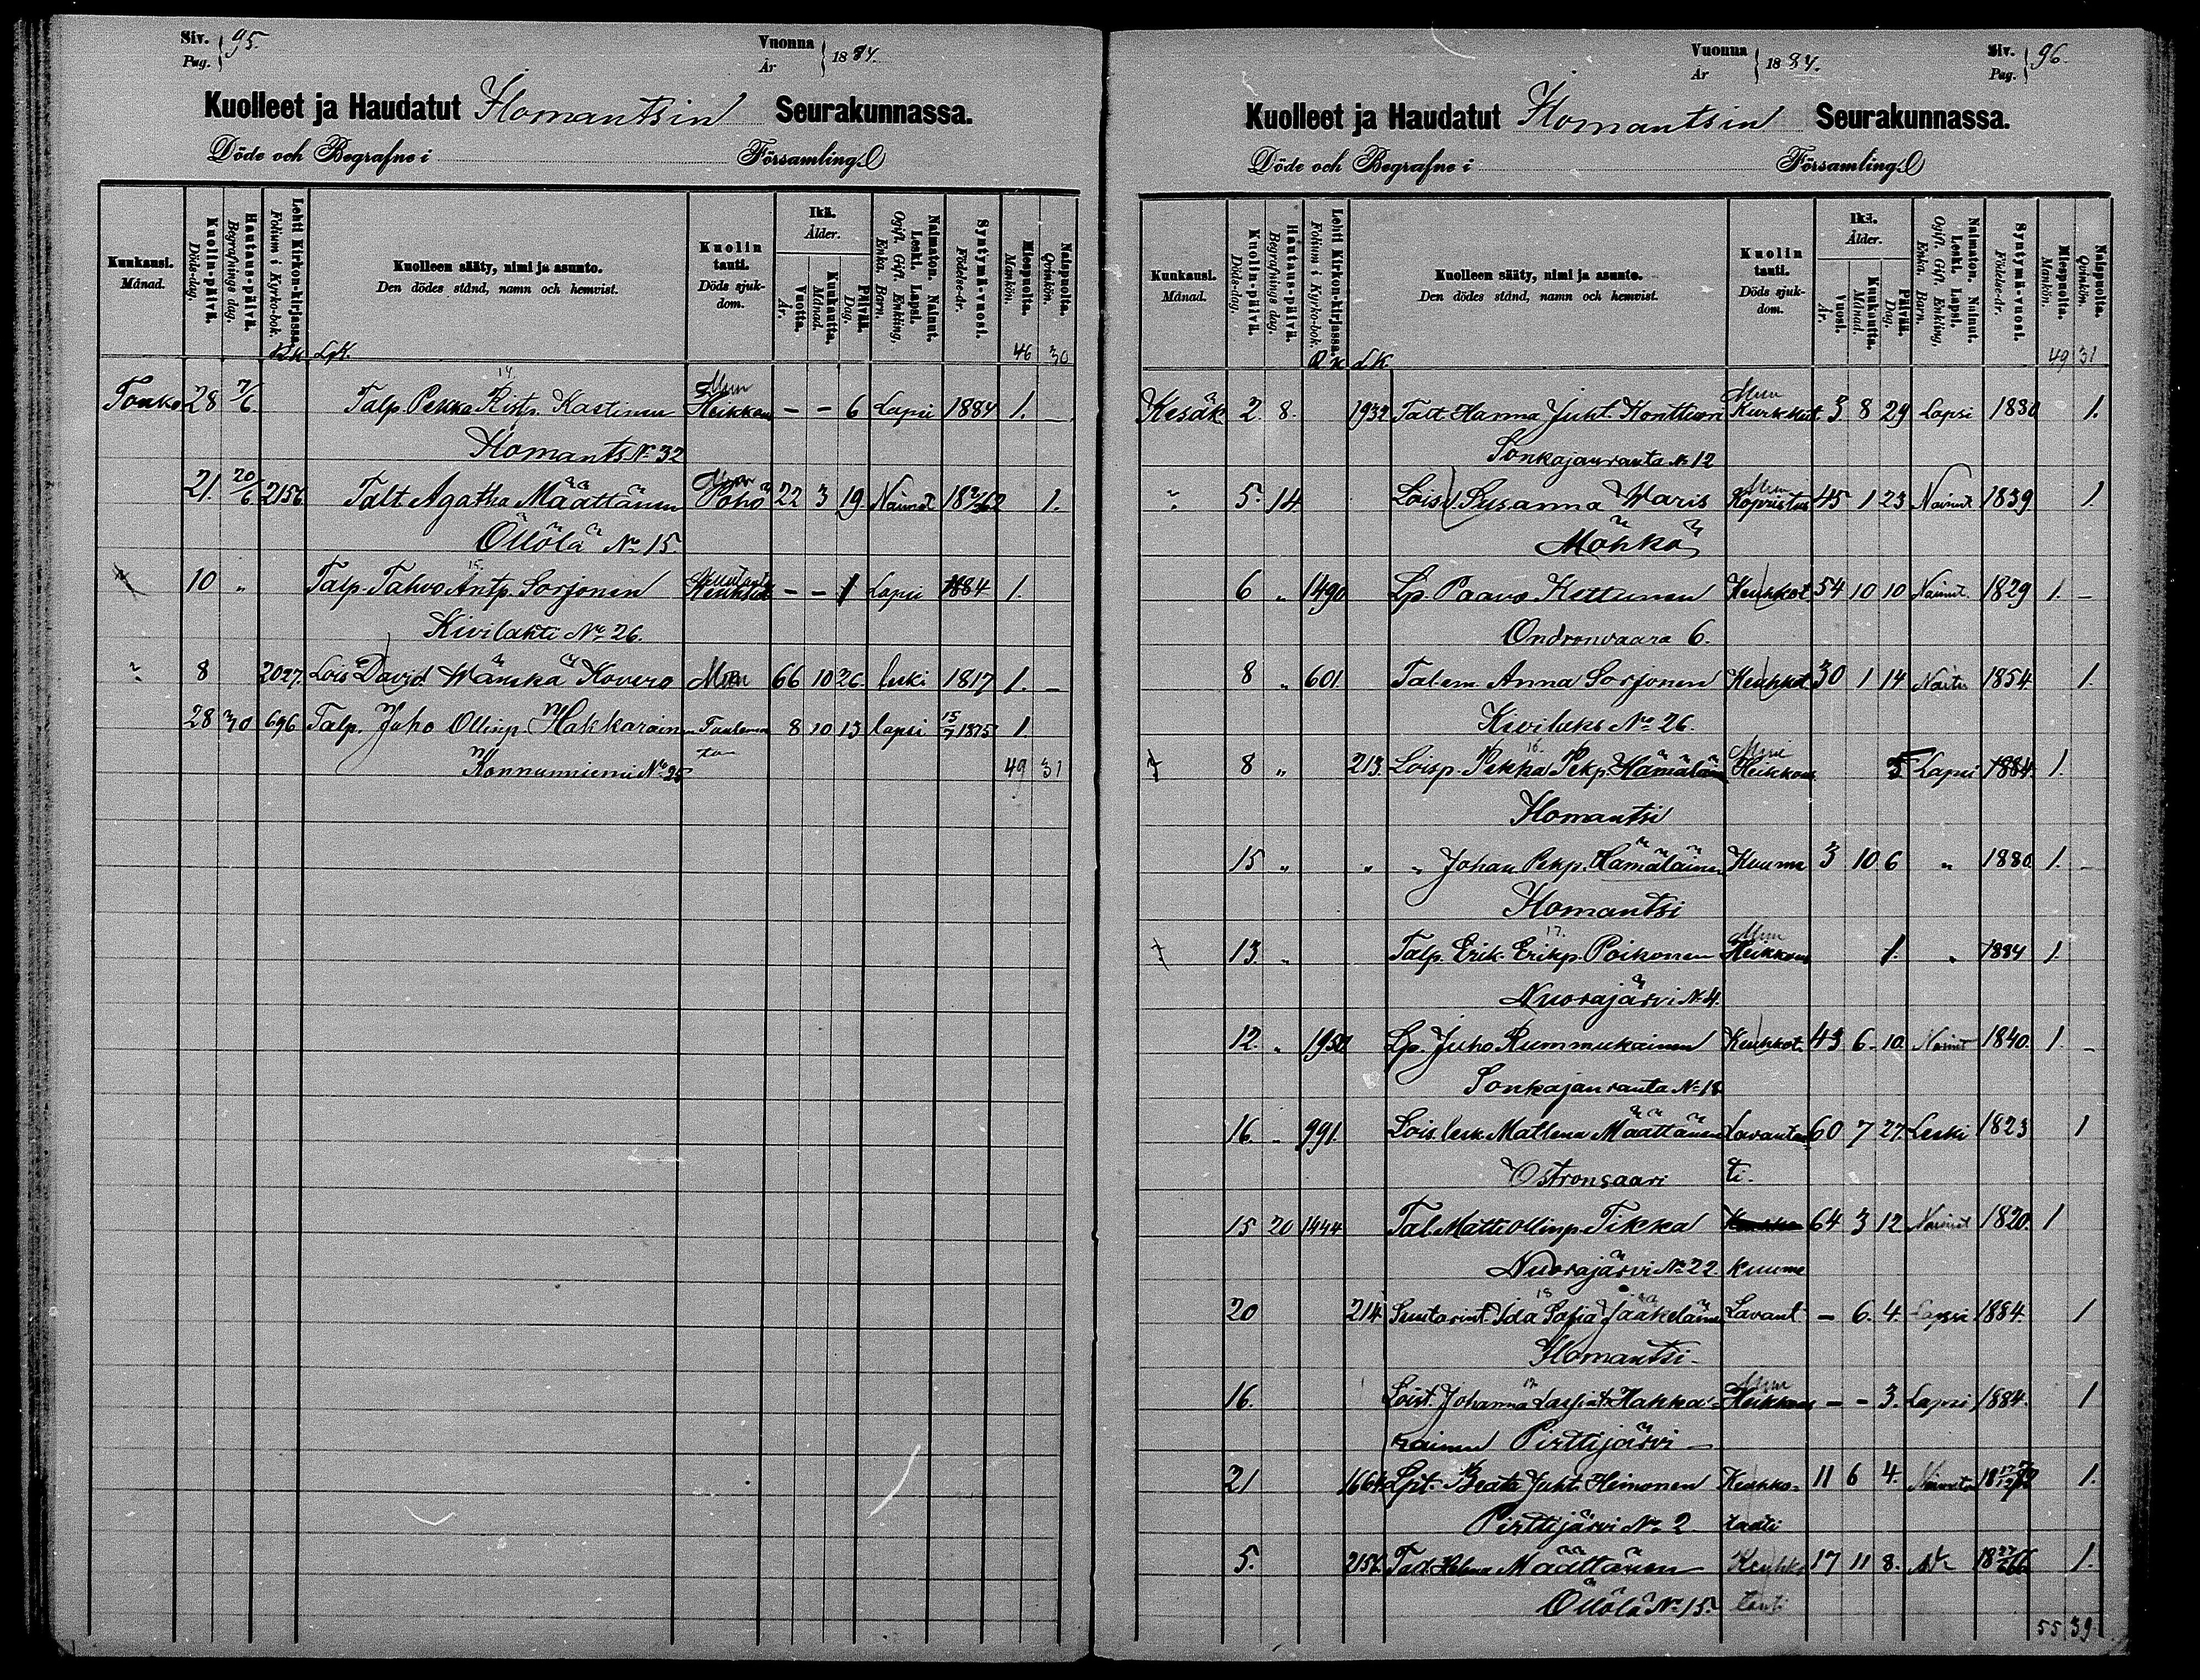 Siv. 95.
Pag.
Vuonna 1884.
År
Kuolleet ja Haudatut Ilomantsin Seurakunnassa.
Döde och Begrafne i Församling.
Kuukausi. Månad.
Kuolin-päivä. Döds-dag.
Hautaus-päivä. Begrafnings dag.
Lehti Kirkon-kirjassa. Folium i Kyrko-bok.
Kuolleen sääty, nimi ja asunto.
Den dödes stånd, namn och hemvist.
Kuolin tauti. Döds sjukdom.
Ikä. Ålder.
Vuotta. År.
Kuukautta. Månad.
Päivää. Dag.
Naimaton. Nainut. Leski. Lapsi. Ogift. Gift. Enkling, Enka. Barn.
Syntymä-vuosi. Födelse-år.
Miespuolta. Mankön.
Naispuolta. Qvinkön.
LpK. 46 30
Touko 28 7/6 Talp. Pekka Ristp. Kastinen 14. Muu Heikkous - - 6 Lapsi 1884 1. -
Ilomants No 32
21. 20/6 2156 Talt Agatha Määttänen Muu Pöhö 22 3 19 Nainut 1862 1.
Öllölä No 15.
10 " Talp. Tahvo Antp. Sorjonen 15. - - 1 Lapsi 1884 1.
Kivilahti No 26.
" 8 2027. Lois David Wänskä Kovero Muu 66 10 26 leski 1817 1. -
28 30 636 Talp. Juho Ollinp. Hakkarainen 8 10 13 lapsi 15/7 1875 1.
Konnunniemi No 25 49 31
Vuonna 1884.
År
Siv. 96.
Pag.
Kuolleet ja Haudatut Ilomantsin Seurakunnassa.
Döde och Begrafne i Församling.
Kuukausi. Månad.
Kuolin-päivä. Döds-dag.
Hautaus-päivä. Begrafnings dag.
Lehti Kirkon-kirjassa. Folium i Kyrko-bok.
Kuolleen sääty, nimi ja asunto.
Den dödes stånd, namn och hemvist.
Kuolin tauti. Döds sjukdom.
Ikä. Ålder.
Vuosi. År.
Kuukautta. Månad.
Päivää. Dag.
Naimaton. Nainut. Leski. Lapsi. Ogift. Gift. Enkling, Enka. Barn.
Syntymä-vuosi. Födelse-år.
Miespuolta. Mankön.
Naispuolta. Qvinkön.
L.K. 49 31
Kesäk. 2. 8. 1932 Talt. Hanna Juht. Konttinen Muu Kurkkut. 3 8 29 Lapsi 1880 1.
Sonkajanranta No 12
" 5. 14 Lois. v. Susanna Waris Muu Kopristus 45 1 23 Nainut 1839 1.
Möhkö
6 " 1490 Lp. Paavo Kettunen Keuhkot. 54 10 10 Nainut. 1829 1. -
Ondronvaara 6.
8 " 601. Tal em. Anna Sorjonen Keuhkot 30 1 14 1854. 1.
Kivilaks No 26.
8 " 213. Loisp. Pekka Pekp. Hämäläin 16. Muu Heikkous 5 Lapsi 1884. 1.
Ilomantsi
15 " " " Johan Pekp. Hämäläinen Kuume 3 10 6 " 1880 1. -
Ilomantsi
13. " Talp. Erik Erikp. Poikonen 17. Muu Heikkous 1. " 1884 1.
Nuorajärvi No 4.
12. " 1950 Lp. Juho Rummukainen Keuhkot. 43 6 10. Nainut 1840. 1. -
Sonkajanranta No 18
16 " 991. Lois. lesk. Matlena Määttänen Lavantau 60 7 27. Leski 1823 1
Ostronsaari ti.
15 20 1444 Tal. Matti Ollinp. Tikka 64 3 12. Nainut 1820. 1
Nuorajärvi No 22. kuume
20 214 Suutarint. Ida Sofia Jääkeläinen 18 Lavant - 6. 4. Lapsi 1884. 1
Ilomantsi -
16. Loist. Johanna Hakka- Muu Heikkous - - 3. Lapsi 1884. 1
rainen Pirttijärvi -
21 1664 Lpt. Beata Juht. Heimonen Keuhko- 11 6 4. 1.
Pirttijärvi No 2 tauti
5. 2156. Helena Määttänen Keuhko 17 11 8. 1.
Öllölä No 15. tauti
55 39